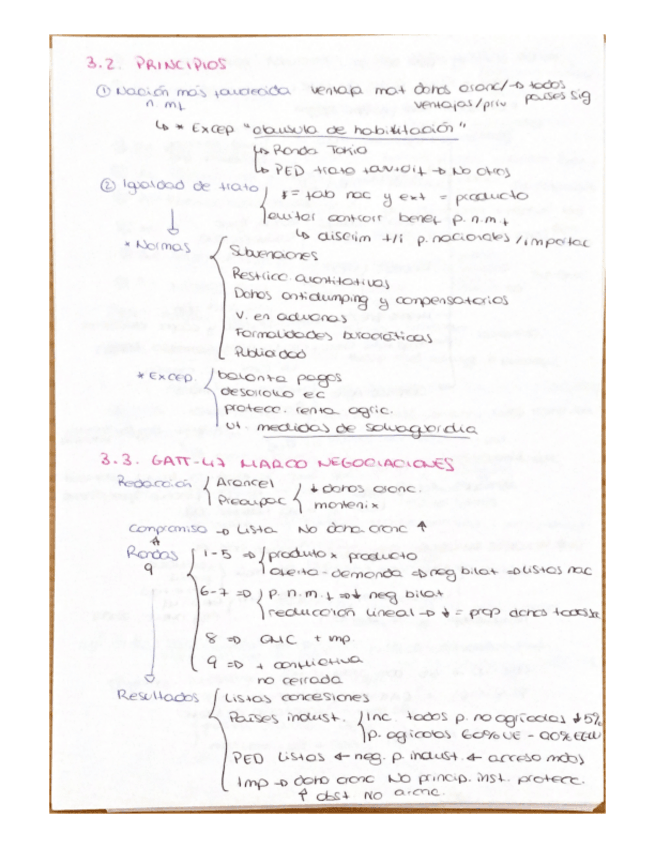 3.2. PRINCIPIOS
① Nación más favorecida ventaja mat dchos aranc/→ todos
n. m f ventajas/priv países sig
↳ * Excep "clausula de habilitación"
↳ Ronda Tokio
↳ PED trato favdif → No otros
② Igualdad de trato = fab nac y ext = producto
evitar contrarr benef p. n.m.f
↳ discrim f/i p. nacionales / importac
* Normas Subvenciones
Restricc. cuantitativas
Dchos antidumping y compensatorios
V. en aduanas
Formalidades burocráticas
Publicidad
* Excep. balanza pagos
desarrollo ec
protecc. renta agric.
ut. medidas de salvaguardia
3.3. GATT-47 MARCO NEGOCIACIONES
Redacción Arancel ↓ dchos aranc.
Preocupac mantenix
Compromiso → Lista No dcho aranc ↑
Rondas 1-5 ⇒ producto x producto
9 oferta-demanda ⇒ neg bilat ⇒ listas nac
6-7 ⇒ p. n.m.f ⇒ ↓ neg bilat
reducción lineal → ↓ = prop dchos todos
8 ⇒ OMC + imp
9 ⇒ + conflictiva
no cerrada
Resultados Listas concesiones
Países indust. Inc. todos p. no agrícolas ↓5%
p. agícolas 60% UE - 90% EEUU
PED Listas ← neg. p. indust. ← acceso mdos
Imp → dcho aranc No princip. inst. protecc.
↑ obst NO aranc.